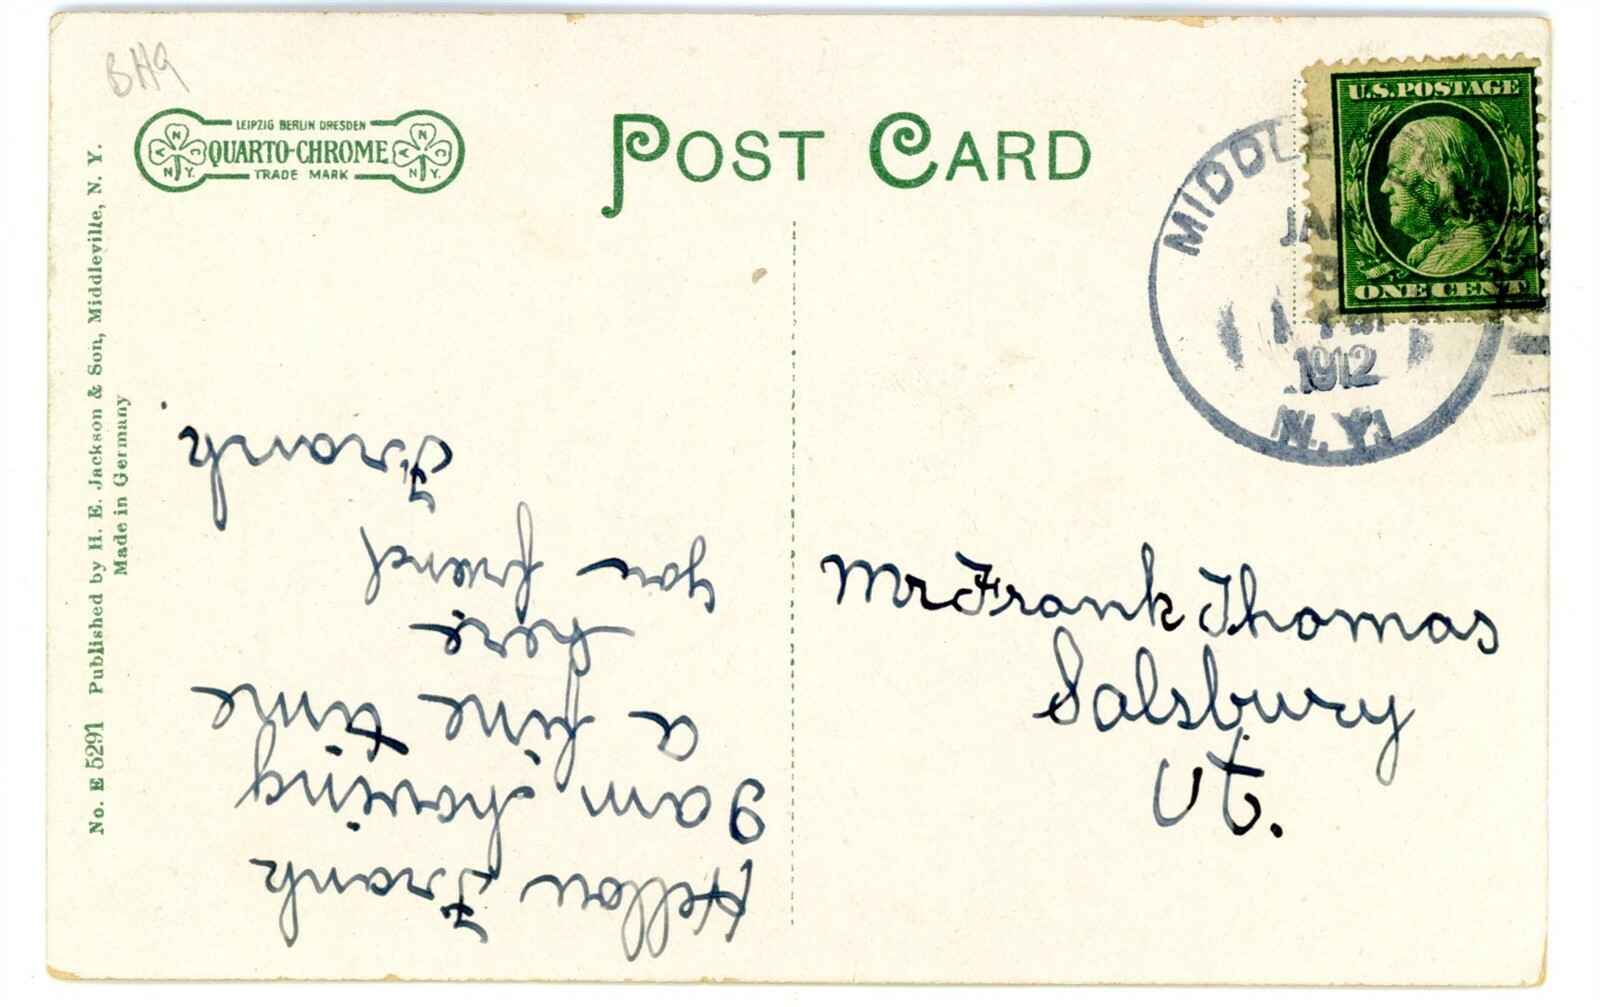 BH9
LEIPZIG BERLIN DRESDEN
QUARTO-CHROME
TRADE MARK
A N C N.Y.
A N C N.Y.
POST CARD
U.S.POSTAGE
ONE CENT
MIDDLE
JAN
1912
N.Y.
No. E 5291 Published by H. E. Jackson & Son, Middleville, N. Y.
Made in Germany
Hellou Frank
I am having
a fine time
here
you friend
Frank
Mr Frank Thomas
Salsbury
Vt.